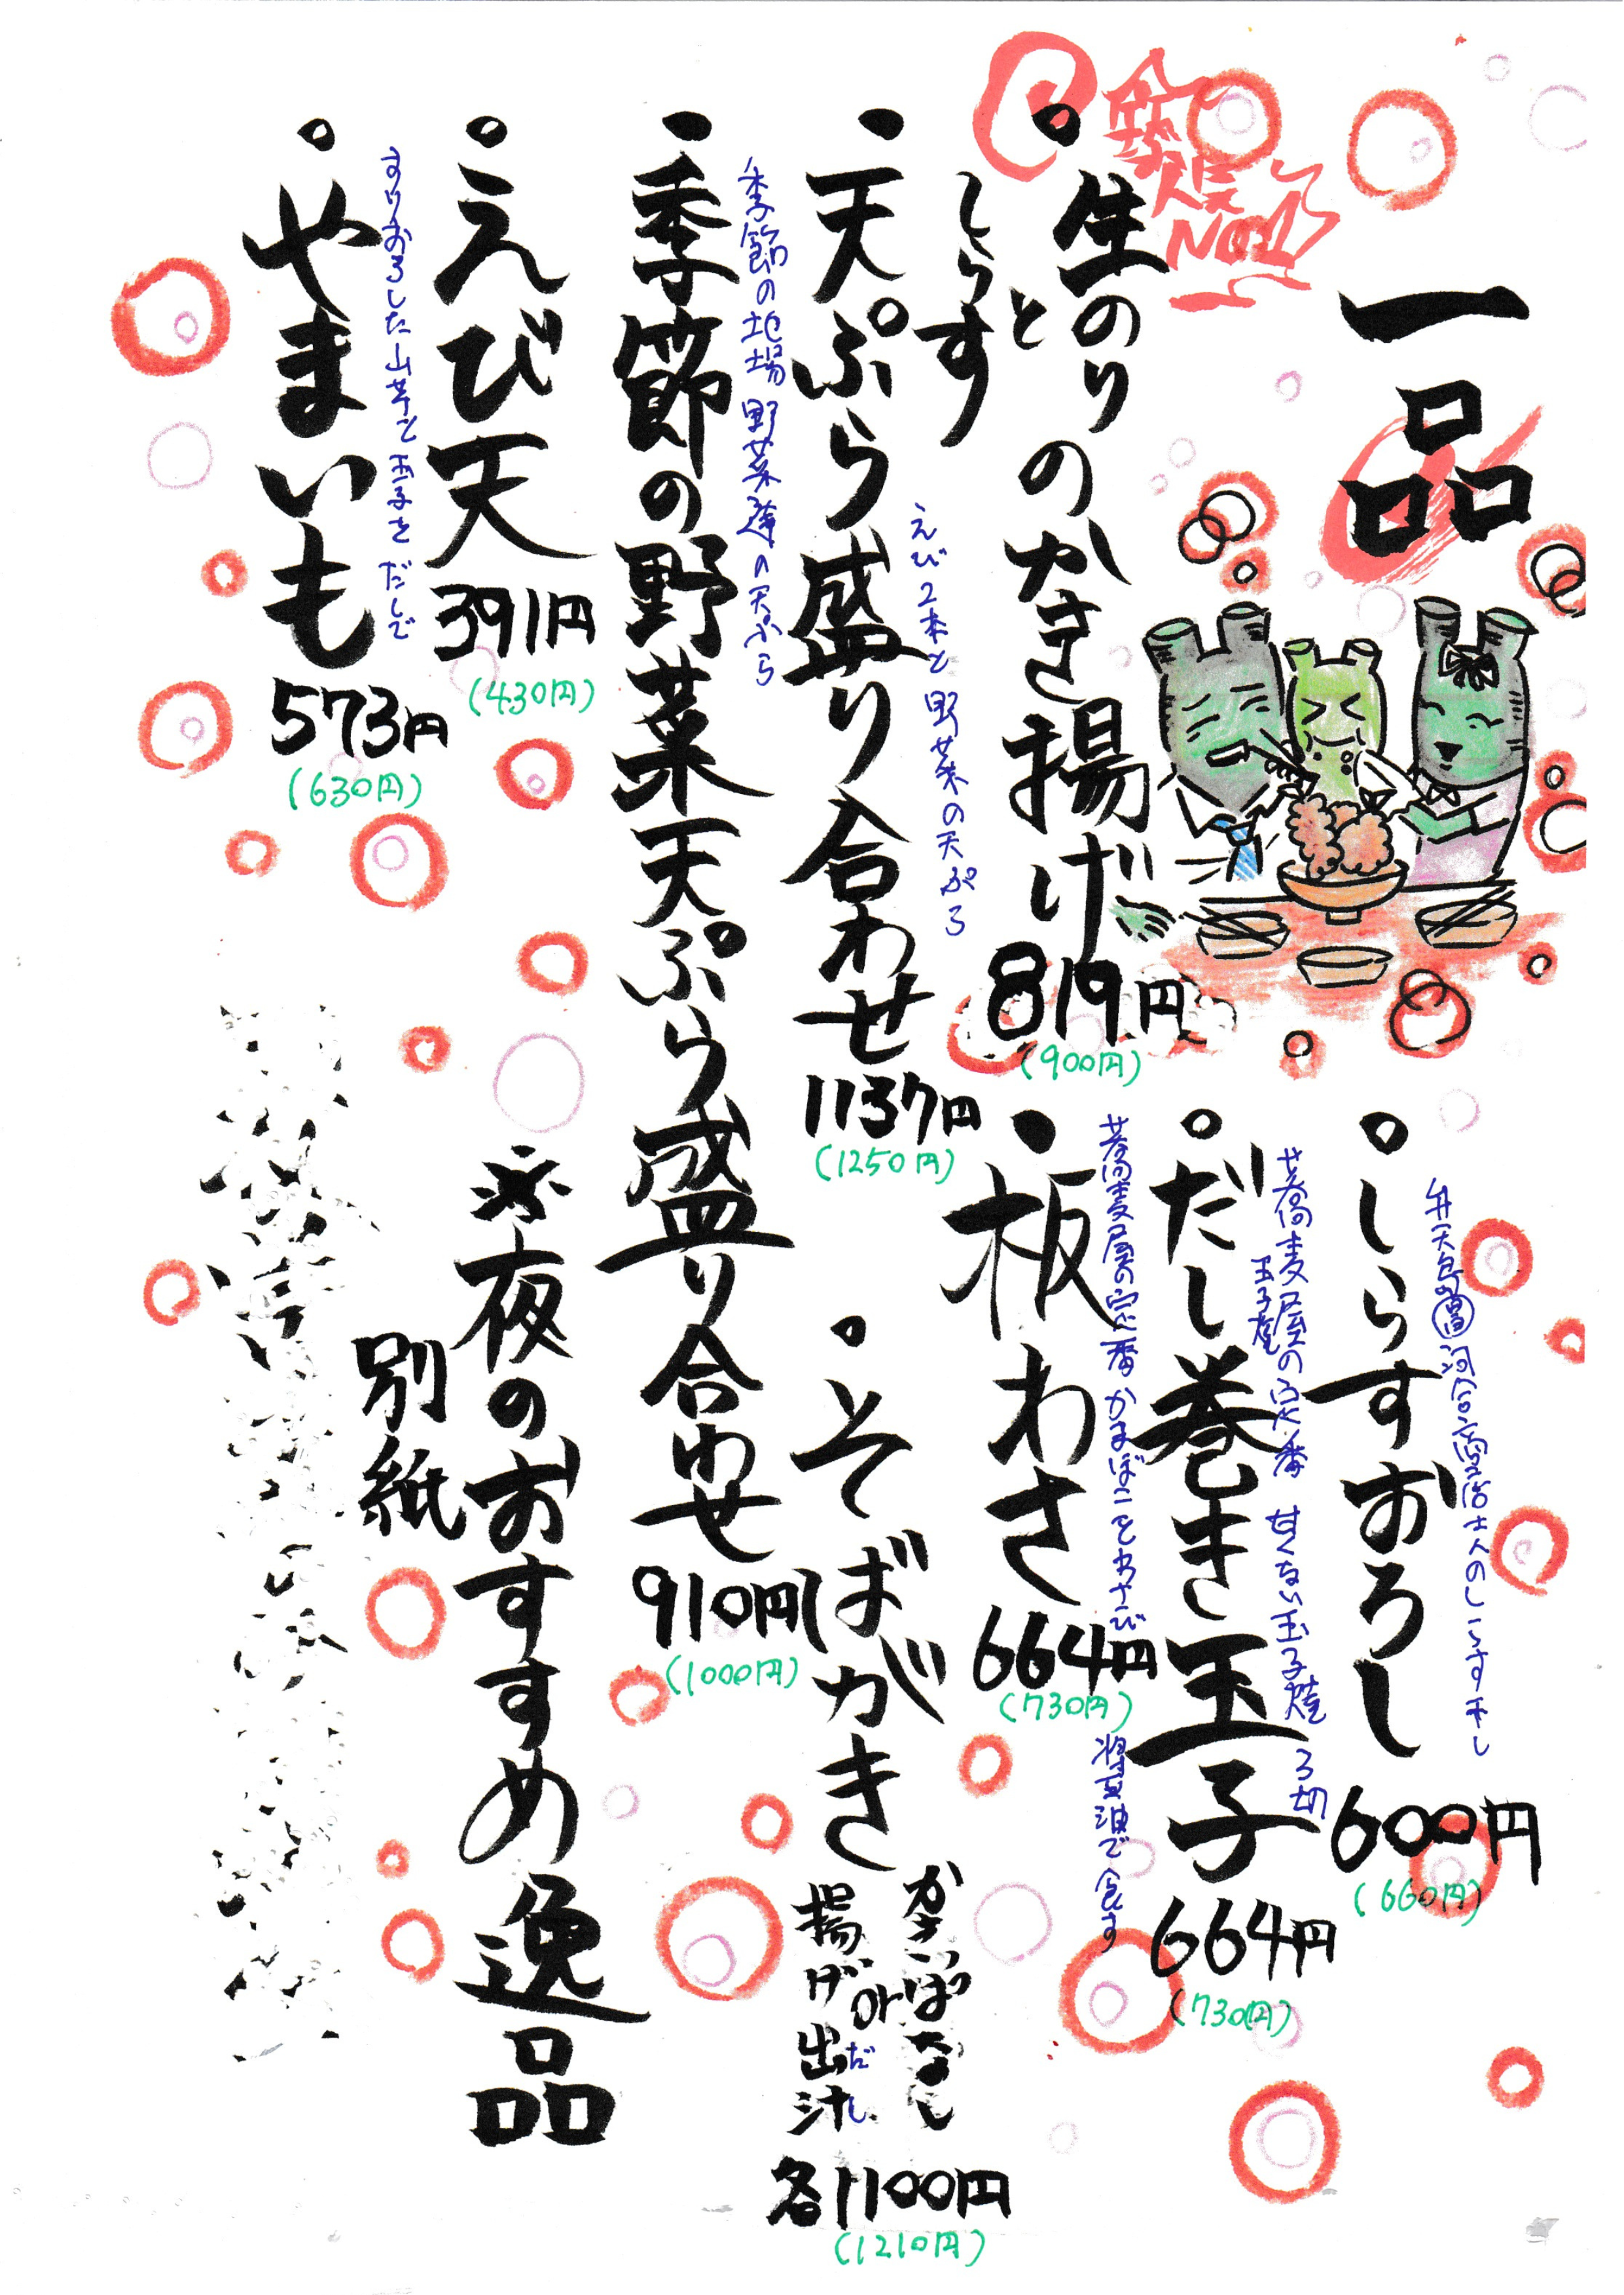 一品
人気
No.1
・生のりと
しらす
のかき揚げ 819円
(900円)
・天ぷら盛り合わせ 1137円
(1250円)
えび2本と野菜の天ぷら
・季節の野菜天ぷら盛り合わせ 910円
(1000円)
季節の地場野菜達の天ぷら
・えび天 391円
(430円)
・やまいも 573円
(630円)
すりおろした山芋と玉子をだしで
・しらすおろし 600円
(660円)
弁天島
しらす干し
・だし巻き玉子 664円
(730円)
蕎麦屋の定番 甘くない玉子焼 3切
玉子焼
・板わさ 664円
(730円)
蕎麦屋の定番 かまぼことわさび 醤油で食す
・そばがき
揚げ出し
or
だし汁
各1100円
(1210円)
※夜のおすすめ逸品
別紙